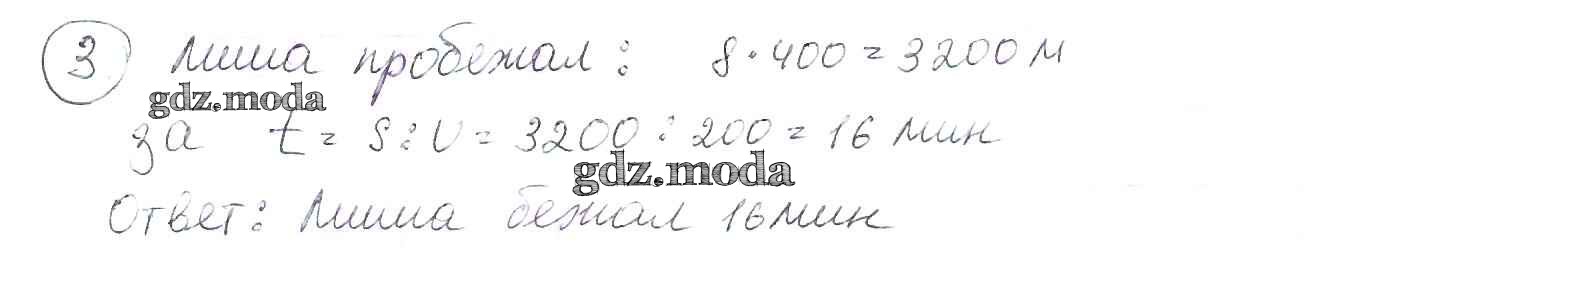 3 Миша пробежал: 8·400=3200 м
gdz.moda
за t = S:U = 3200:200 = 16 мин
gdz.moda
Ответ: Миша бежал 16 мин